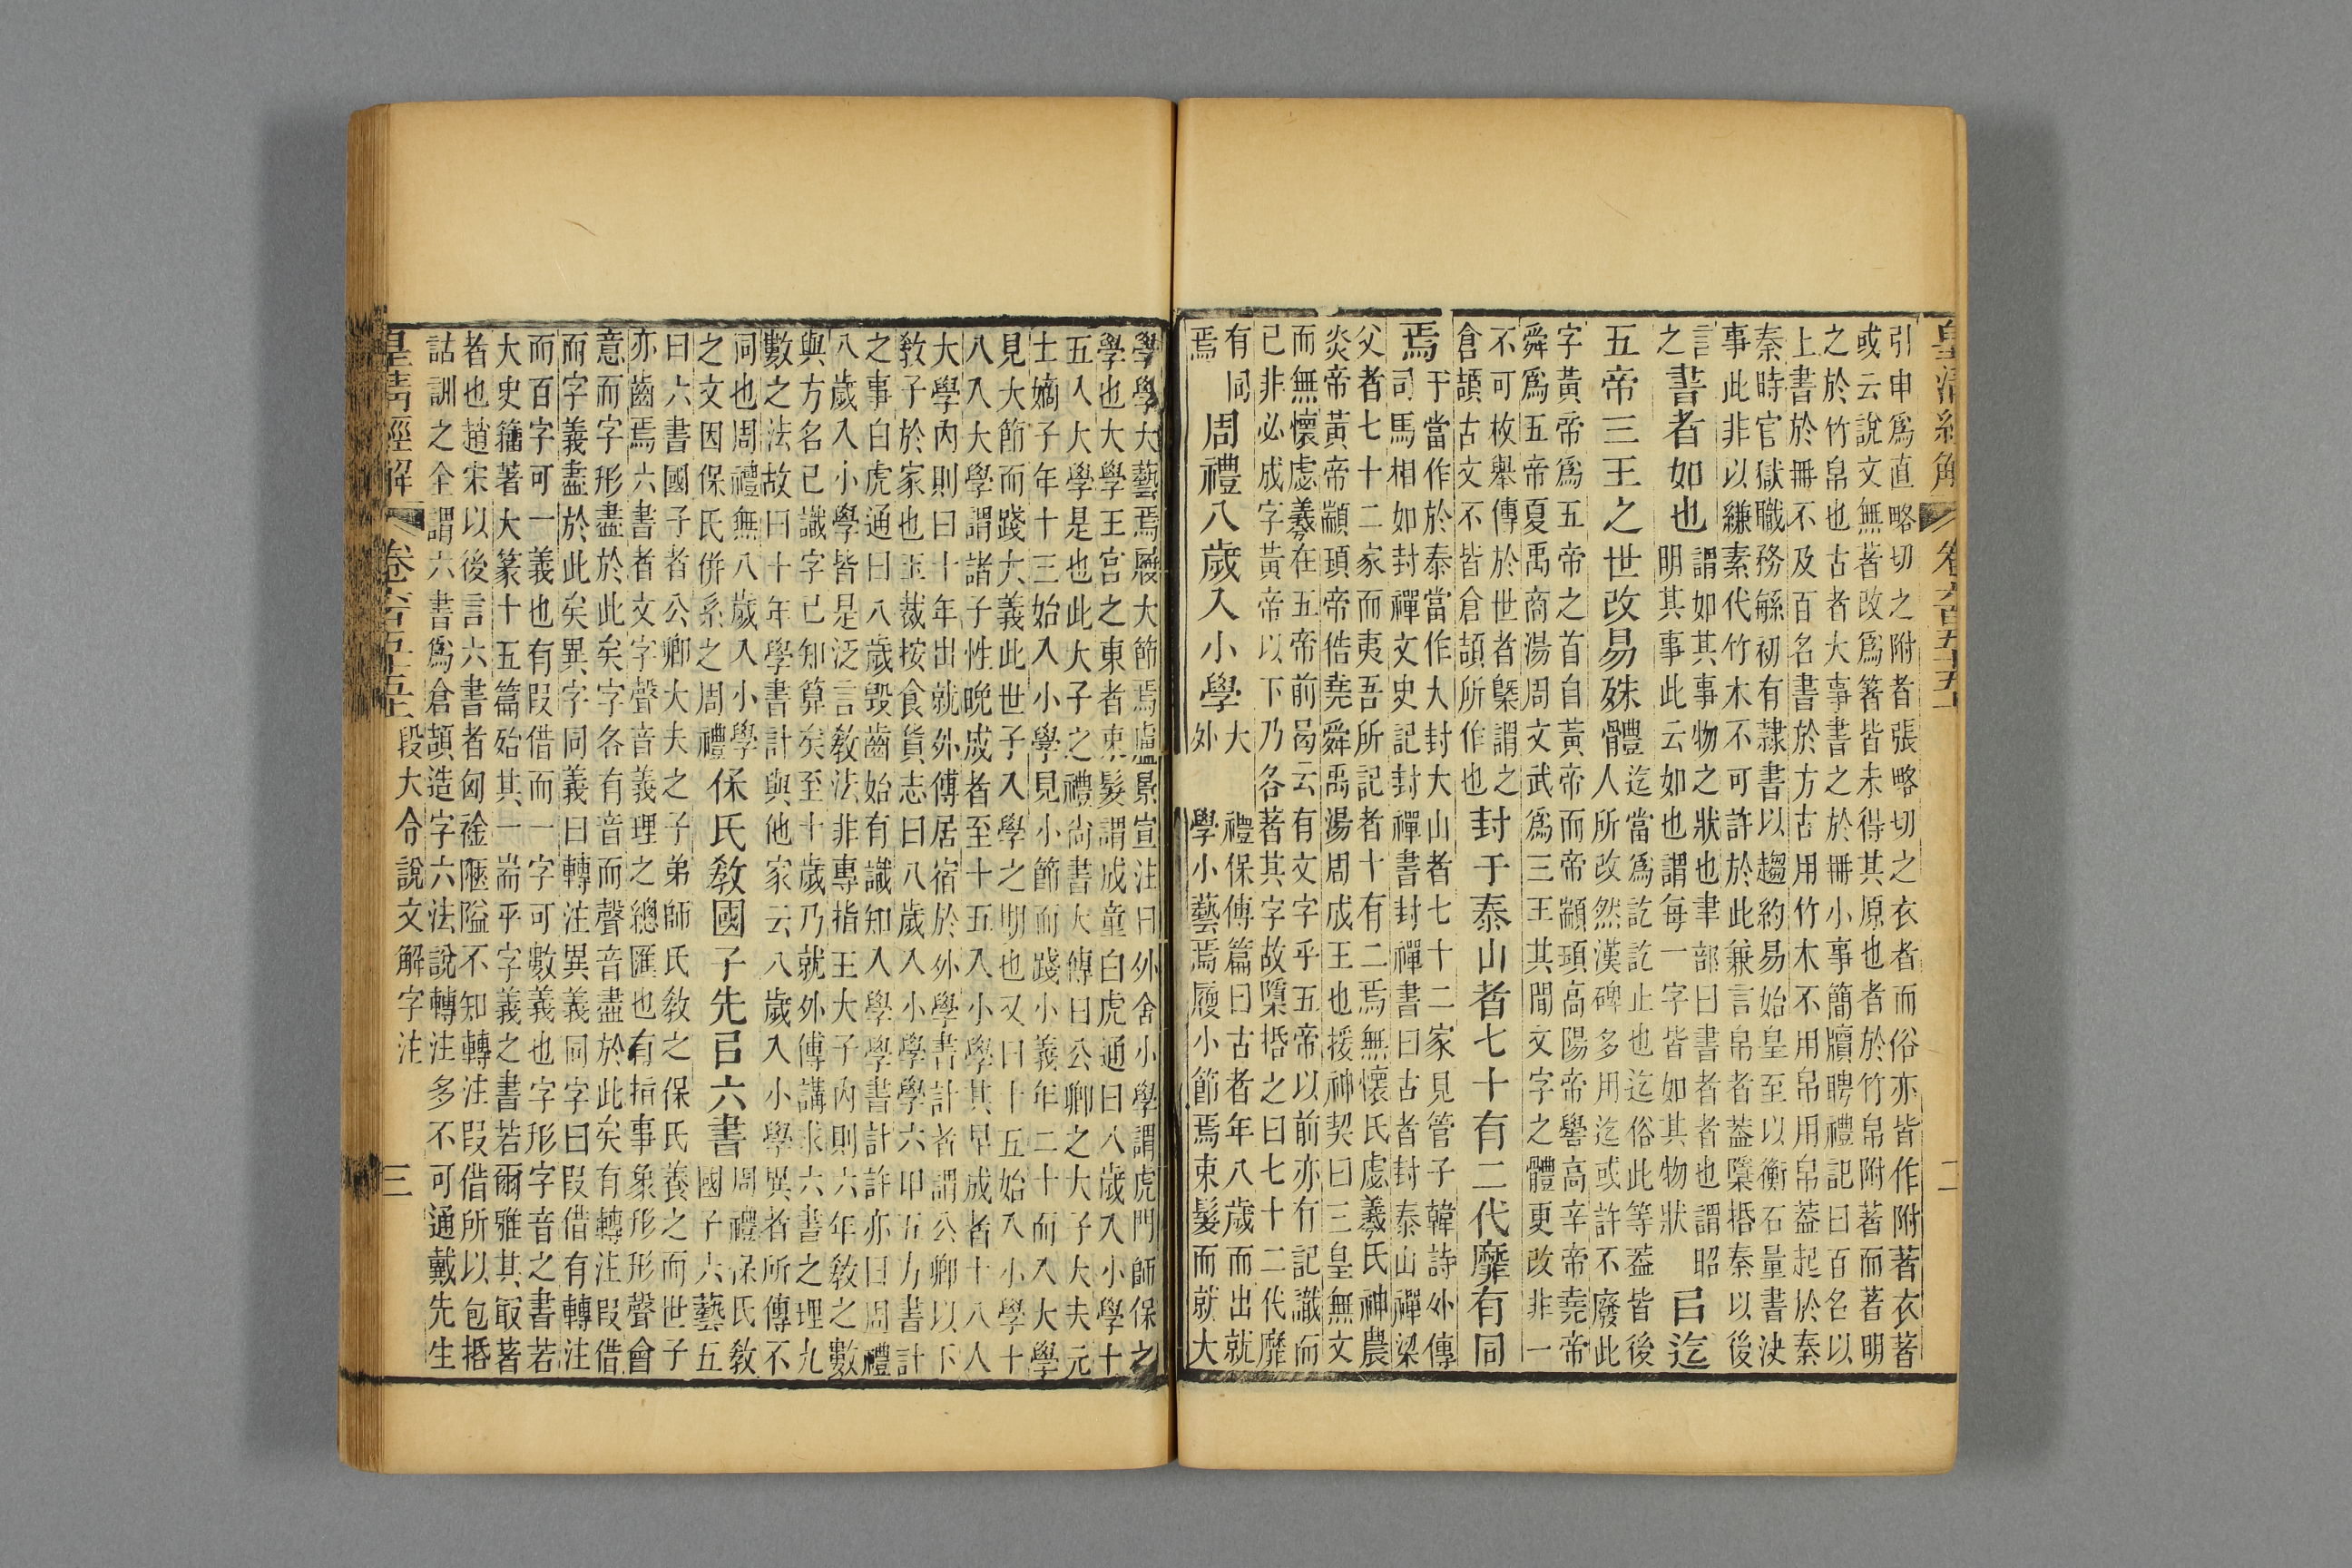 皇清經解 卷六百五十五上 二
引申爲直略切之附者張略切之衣者而俗亦皆作附著衣著
或云說文無著改爲箸皆未得其原也者於竹帛附著而著明
之於竹帛也古者大事書之於冊小事簡牘聘禮記曰百名以
上書於冊不及百名書於方古用竹木不用帛用帛葢起於秦
秦時官獄職務緐初有隷書以趨約易始皇至以衡石量書決
事此非以縑素代竹木不可許於此兼言帛者葢檃捪秦以後
言之
書者如也
謂如其事物之狀也聿部曰書者者也謂昭
明其事此云如也謂每一字皆如其物狀
㠯迄
五帝三王之世改易殊體
迄當爲訖訖止也迄俗此等葢皆後
人所改然漢碑多用迄或許不廢此
字黃帝爲五帝之首自黃帝而帝顓頊高陽帝嚳高辛帝堯帝
舜爲五帝夏禹商湯周文武爲三王其閒文字之體更改非一
不可枚舉傳於世者槩謂之
倉頡古文不皆倉頡所作也
封于泰山者七十有二代靡有同
焉
于當作於泰當作大封大山者七十二家見管子韓詩外傳
司馬相如封禪文史記封禪書封禪書曰古者封泰山禪梁
父者七十二家而夷吾所記者十有二焉無懷氏虙羲氏神農
炎帝黃帝顓頊帝俈堯舜禹湯周成王也援神契曰三皇無文
而無懷虙羲在五帝前曷云有文字乎五帝以前亦有記識而
已非必成字黃帝以下乃各著其字故檃捪之曰七十二代靡
有同
焉
周禮八歲入小學
大 禮保傅篇曰古者年八歲而出就
外 學小藝焉履小節焉束髮而就大
學學大藝焉履大節焉盧景宣注曰外舍小學謂虎門師保之
學也大學王宮之東者束髮謂成童白虎通曰八歲入小學十
五入大學是也此大子之禮尚書大傳曰公卿之大子大夫元
士嫡子年十三始入小學見小節而踐小義年二十而入大學
見大節而踐大義此世子入學之期也又曰十五始入小學十
八入大學謂諸子性晚成者至十五入小學其早成者十八人
大學內則曰十年出就外傅居宿於外學書計者謂公卿以下
敎子於家也玉裁按食貨志曰八歲入小學學六甲五方書計
之事白虎通曰八歲毀齒始有識知入學學書計許亦曰周禮
八歲入小學皆是泛言敎法非專指王大子內則六年敎之數
與方名已識字已知算矣至十歲乃就外傅講求六書之理九
數之法故曰十年學書計與他家云八歲入小學異者所傳不
同也周禮無八歲入小學
之文因保氏併系之周禮
保氏敎國子先㠯六書
周禮保氏敎
國子六藝五
曰六書國子者公卿大夫之子弟師氏敎之保氏養之而世子
亦齒焉六書者文字聲音義理之總匯也有指事象形形聲會
意而字形盡於此矣字各有音而聲音盡於此矣有轉注叚借
而字義盡於此矣異字同義曰轉注異義同字曰叚借有轉注
而百字可一義也有叚借而一字可數義也字形字音之書若
大史籒著大篆十五篇殆其一耑乎字義之書若爾雅其㝡著
者也趙宋以後言六書者匈衿陿隘不知轉注叚借所以包捪
詁訓之全謂六書爲倉頡造字六法說轉注多不可通戴先生
皇清經解 卷六百五十五上 段大令說文解字注 三